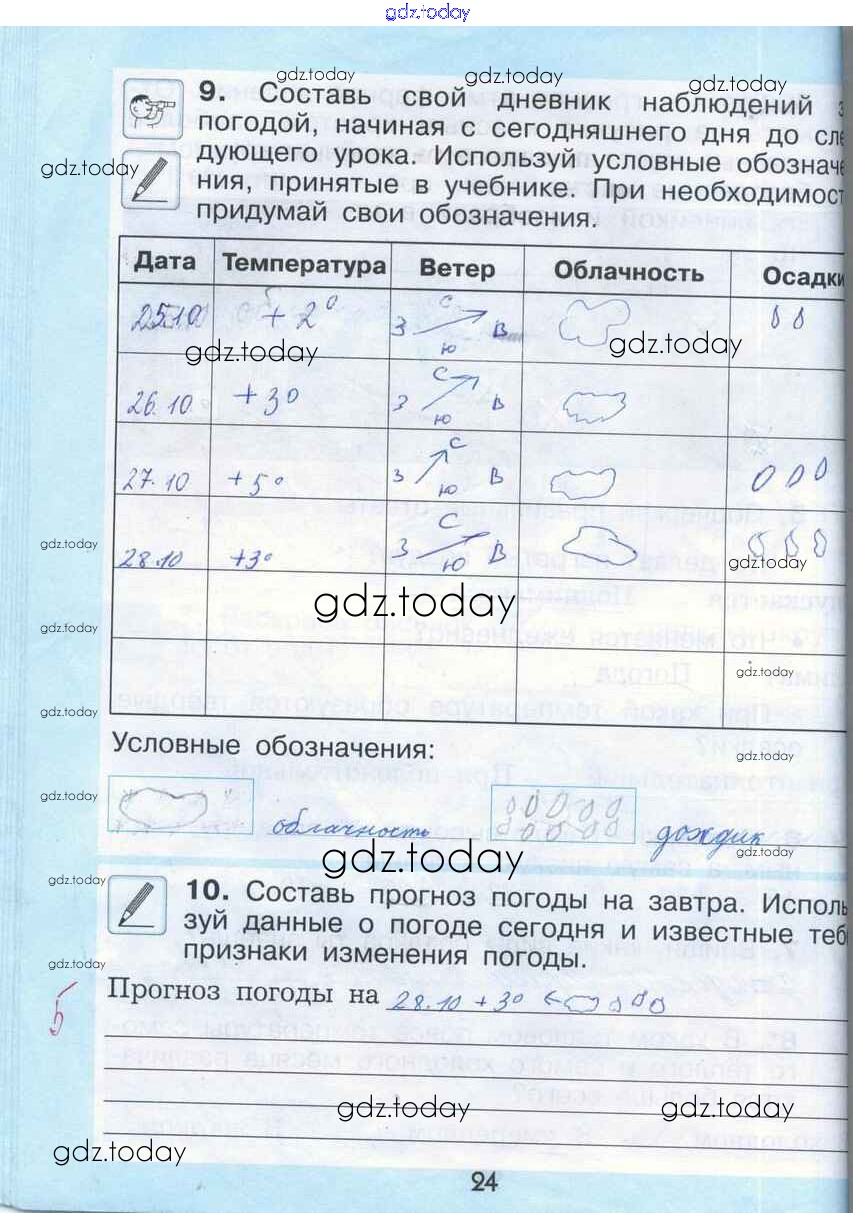 gdz.today
gdz.today gdz.today gdz.today
9. Составь свой дневник наблюдений з
погодой, начиная с сегодняшнего дня до сле
gdz.today
дующего урока. Используй условные обозначе
ния, принятые в учебнике. При необходимост
придумай свои обозначения.
Дата Температура Ветер Облачность Осадки
25.10 +2° С З В Ю
gdz.today gdz.today
26.10 +3° С З В Ю
27.10 +5° С З В Ю
gdz.today
28.10 +3° С З В Ю
gdz.today
gdz.today
gdz.today
gdz.today
gdz.today
Условные обозначения:
gdz.today
gdz.today
облачность дождик
gdz.today
gdz.today
gdz.today
10. Составь прогноз погоды на завтра. Исполь
зуй данные о погоде сегодня и известные теб
признаки изменения погоды.
gdz.today
Прогноз погоды на 28.10 +3°
5
gdz.today gdz.today
gdz.today
24